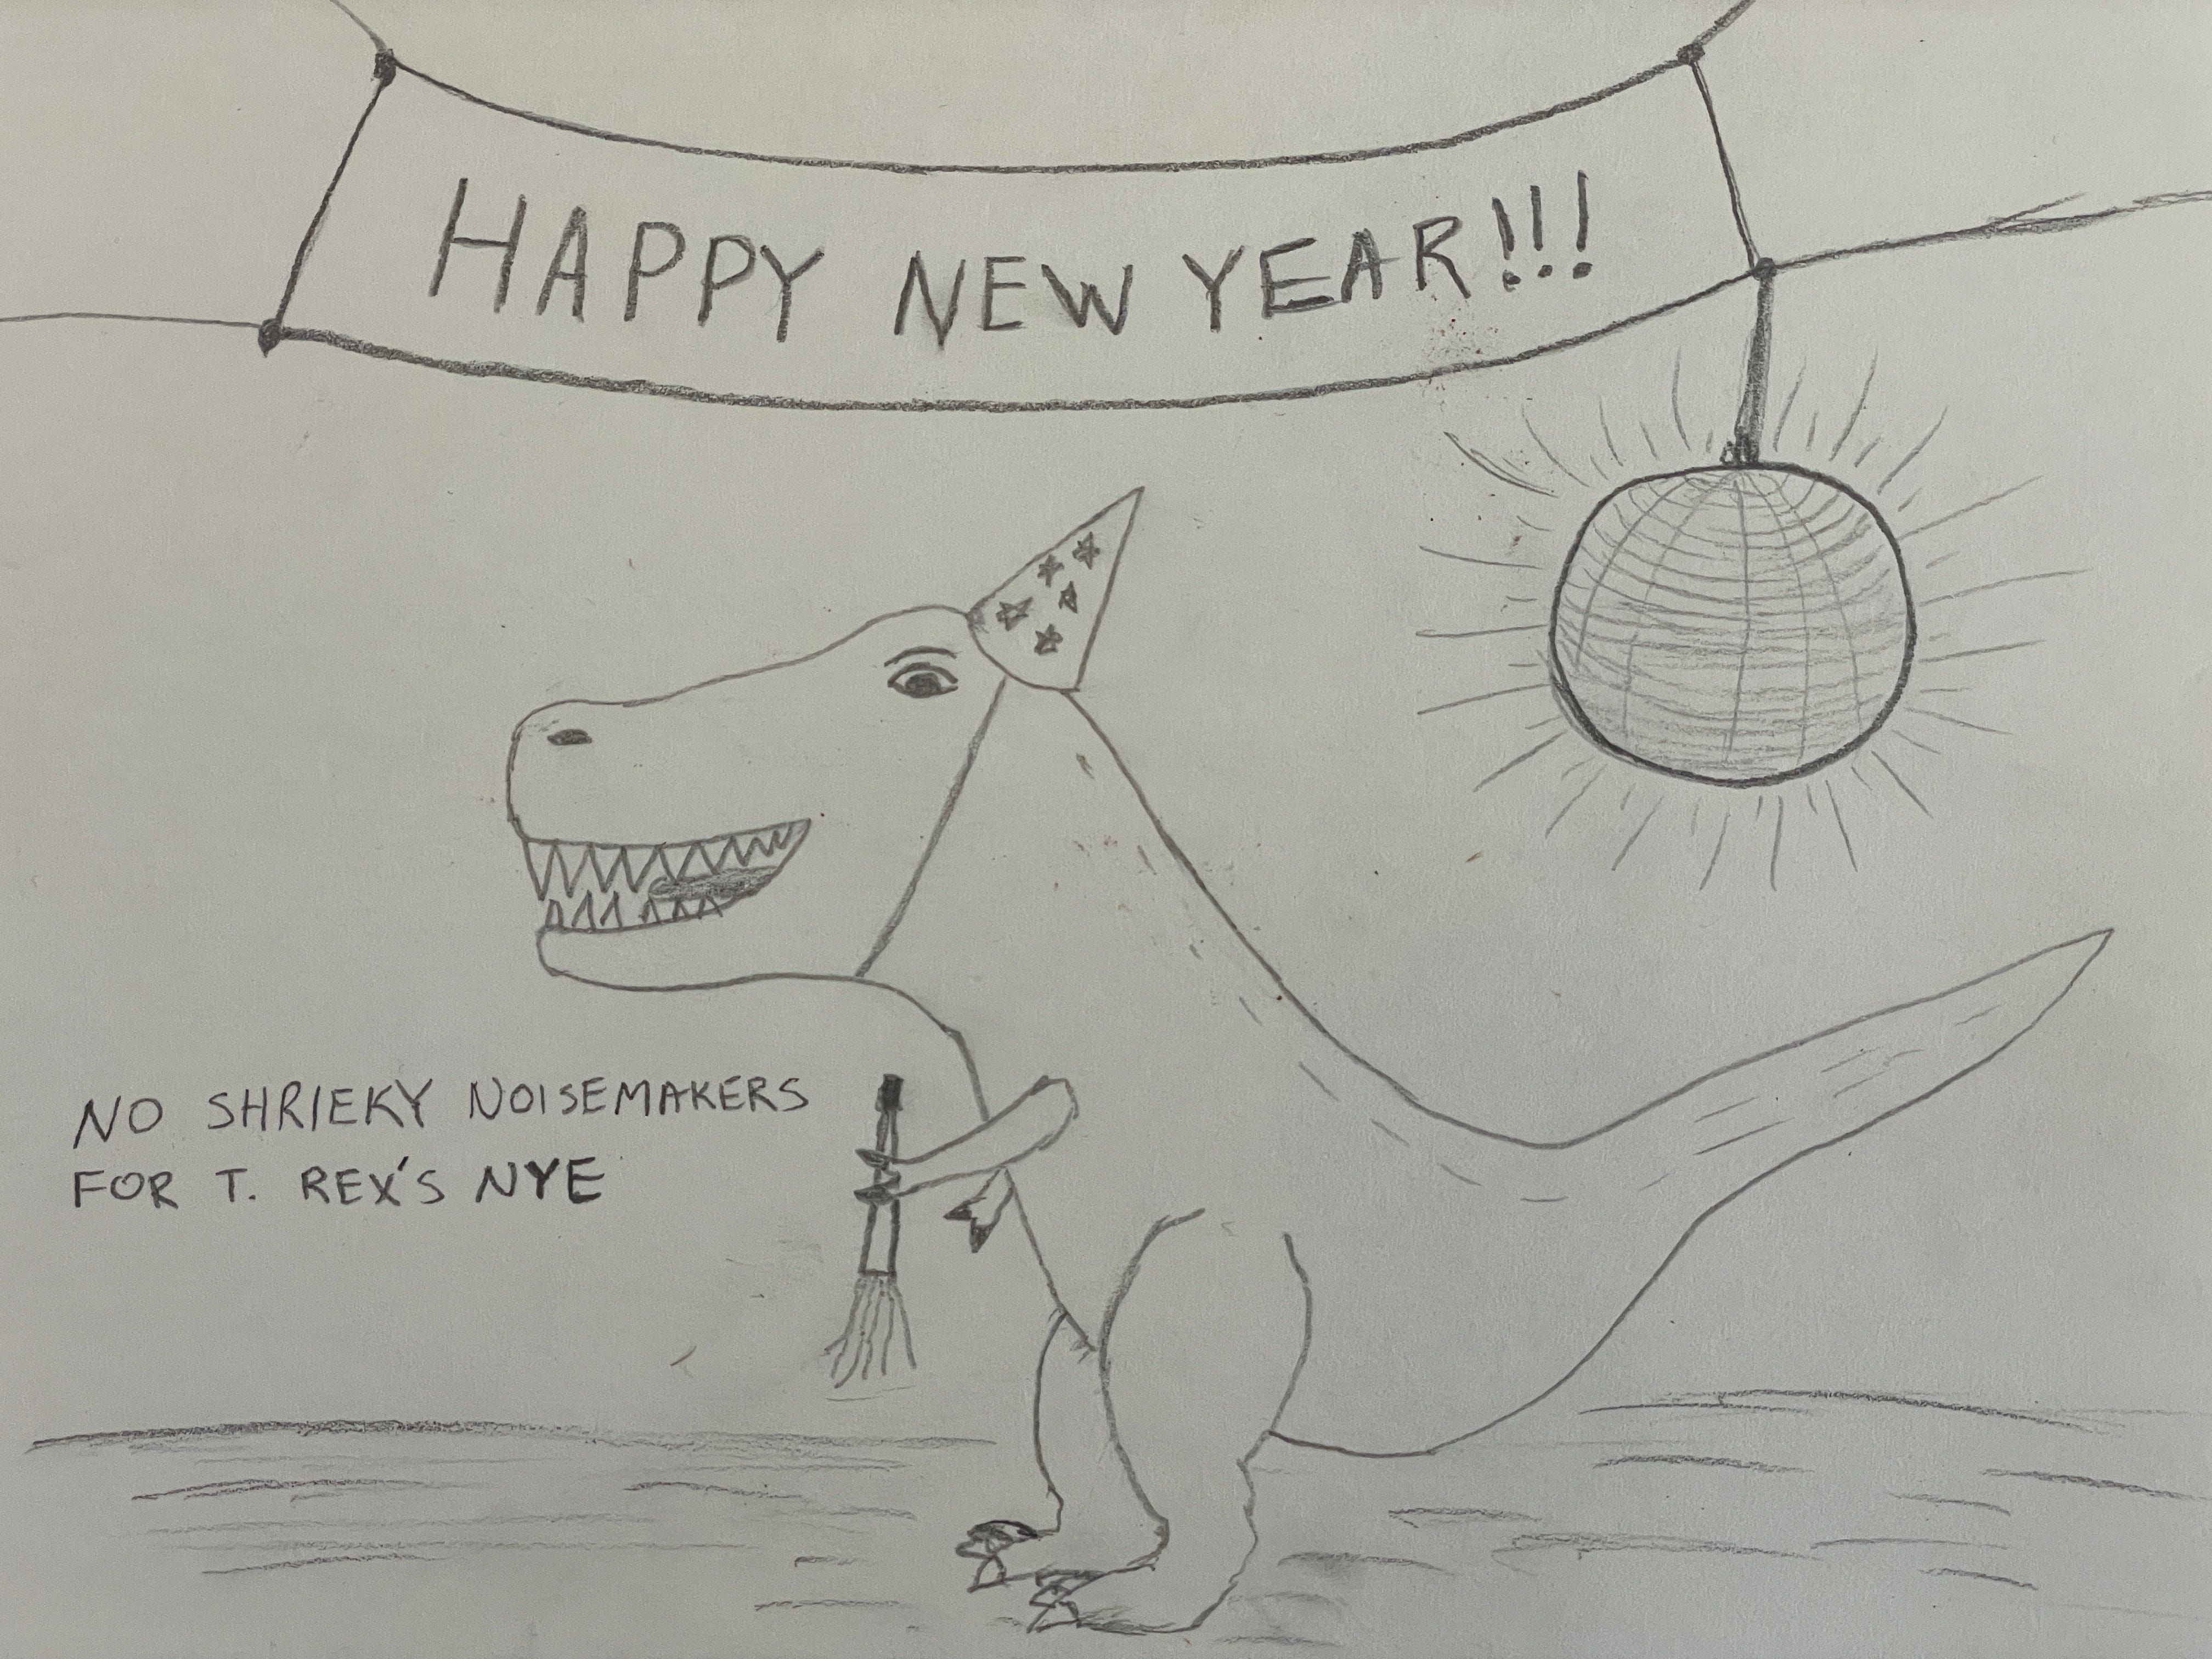 HAPPY NEW YEAR!!!
NO SHRIEKY NOISEMAKERS
FOR T. REX'S NYE